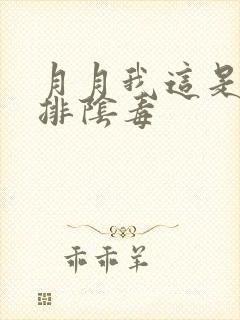 月月我這是
排陰毒
乖乖羊